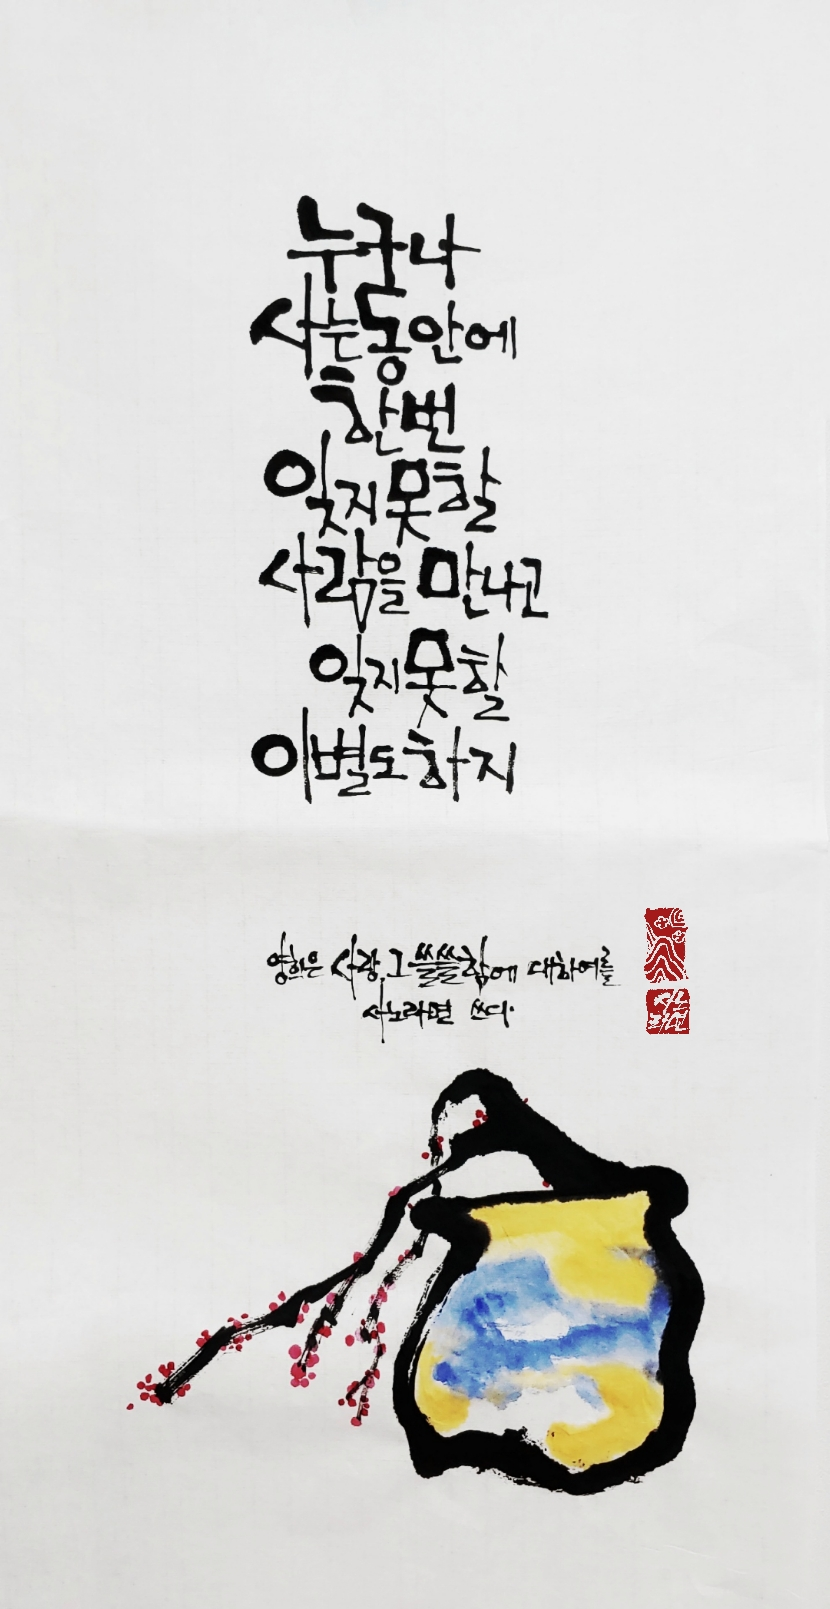 누구나
사는동안에
한번
잊지못할
사람을 만나고
잊지못할
이별도하지
양희은 사랑, 그 쓸쓸함에 대하여를
사노라면 쓰다.
사노
라면